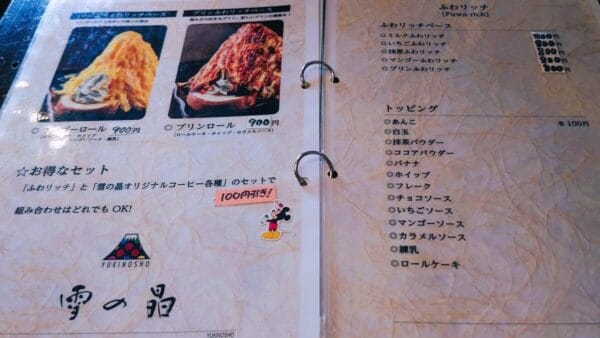 ふわリッチベース
プリンふわリッチベース
ロール 900円
◎ プリンロール 900円
(ロールケーキ・ホイップ・カラメルソース)
☆お得なセット
「ふわリッチ」と「雪の晶オリジナルコーヒー各種」のセットで
100円引き!
組み合わせはどれでもOK!
YUKINOSHO
雪の晶
YUKINOSHO
ふわリッチ
(Fuwa rich)
ふわリッチベース
◎ミルクふわリッチ 800円
◎いちごふわリッチ 800円
◎抹茶ふわリッチ 800円
◎マンゴーふわリッチ 800円
◎プリンふわリッチ 800円
トッピング 各100円
◎あんこ
◎白玉
◎抹茶パウダー
◎ココアパウダー
◎バナナ
◎マンゴー
◎ホイップ
◎フレーク
◎チョコソース
◎いちごソース
◎マンゴーソース
◎カラメルソース
◎練乳
◎ロールケーキ